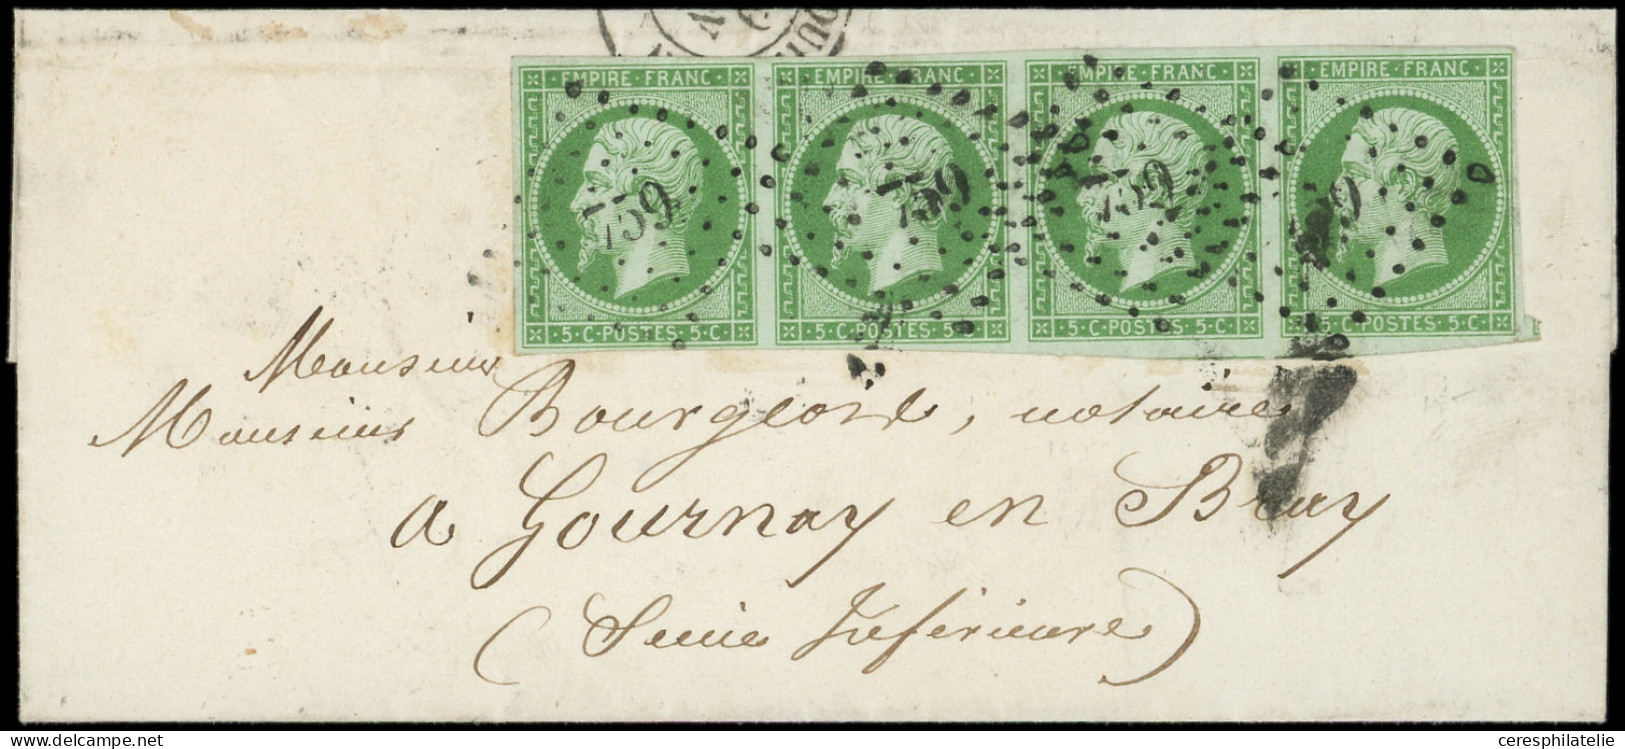 EMPIRE · FRANC EMPIRE · FRANC EMPIRE · FRANC EMPIRE · FRANC
759 759 759 59
· 5 · C · POSTES · 5 · C · · 5 · C · POSTES · 5 · C · · 5 · C · POSTES · 5 · C · · 5 · C · POSTES · 5 · C ·
Monsieur
Monsieur Bourgeois, notaire
a Gournay en Bray
(Seine Inférieure)
www.delcampe.net
ceresphilatelie